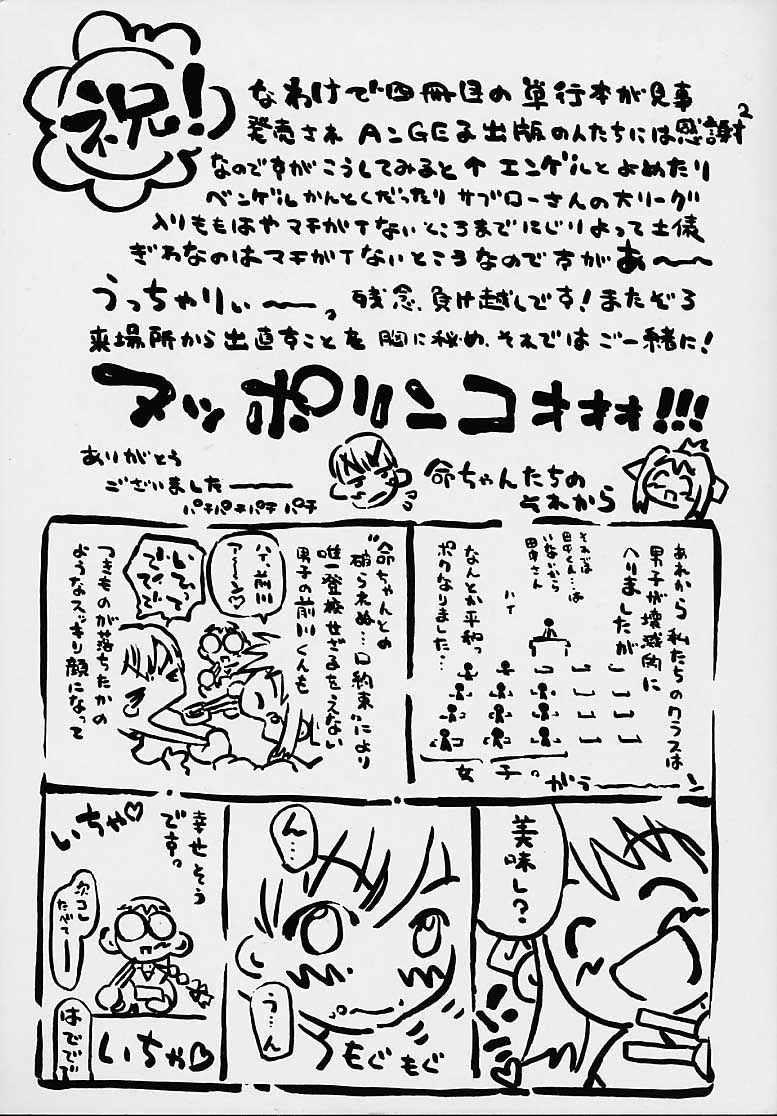 祝!
なわけで四冊目の単行本が見事
発売され AンGEる出版の人たちには感謝²
なのですがこうしてみると↑エンゲルとよめたり
ベンゲルかんとくだったり サブローさんの大リーグ
入りももはやマチガイないところまでにじりよって土俵
ぎわなのはマチガイないところなのですがあ〜〜
うっちゃりぃ〜〜っ 残念、負け越しです!またぞろ
来場所から出直すことを胸に秘め、それではご一緒に!
マッポリンコオオオ!!!
ありがとう
ございましたーー
パチパチパチパチ
命ちゃんたちの
それから
あれから私たちのクラスは
男子が壊滅的に
へりましたが
それでは
田中くん…は
いないから
田中さん
ハイ
なんとか平和っ
ポクなりました…
女子っ
がらーーーン
“命ちゃんとの
破られぬ…口約束”により
唯一登校せざるをえない
男子の前川くんも
ハイ、前川
アーーン♡
いひって
でてて
つきものが落ちたかの
ようなスッキリ顔になって
美味し?
ん…
う…ん
もぐもぐ
幸せそう
ですっ
いちゃ♡
次コレ
たべてーー
いちゃ♡
はででで